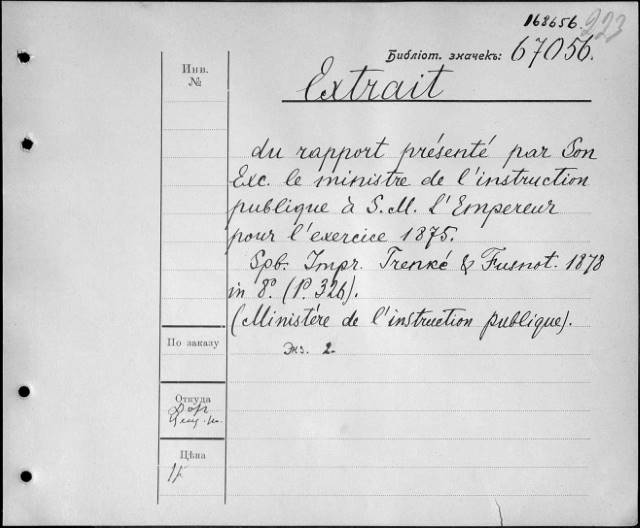 162656. 223
Библіот. значекъ: 67056.
Инв.
№
Extrait
du rapport présenté par Son
Exc. le ministre de l'instruction
publique à S.M. L'Empereur
pour l'exercice 1875.
Spb. Impr. Trenké & Fusnot. 1878
in 8º. (P. 326).
(Ministére de l'instruction publique).
Экз. 2.
По заказу
Откуда
Цѣна